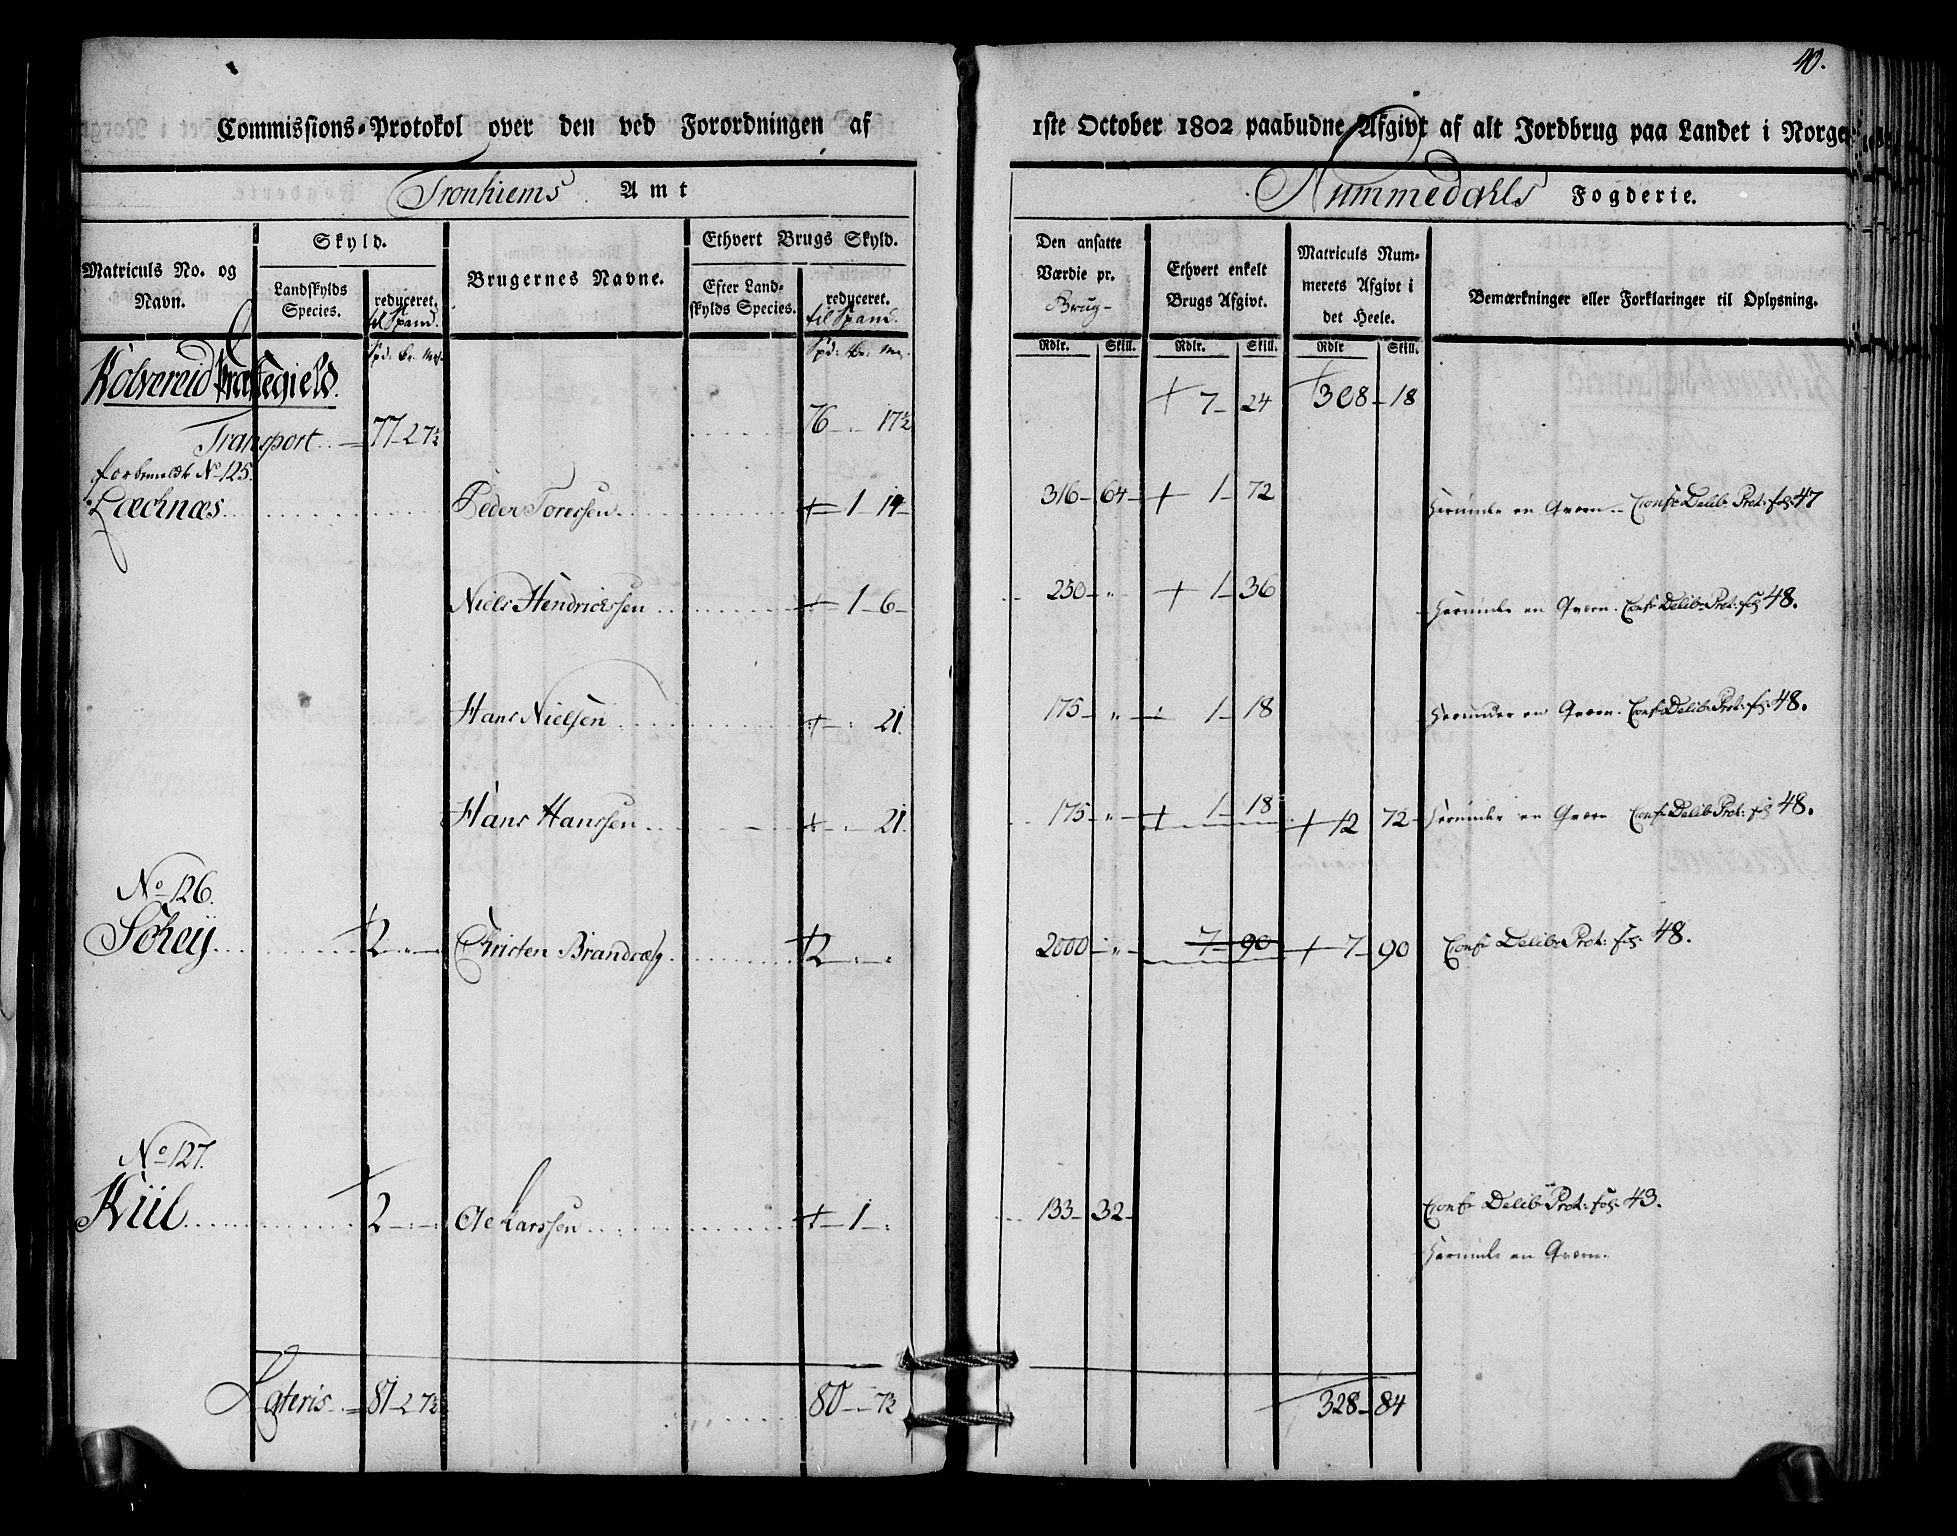 40.
Commissions-Protokol over den ved Forordningen af 1ste October 1802 paabudne Afgivt af alt Jordbrug paa Landet i Norge
Tronhiems Amt
Nummedahls Fogderie.
Matriculs No. og Navn.
Skyld.
Landskylds Species.
reduceret. til Spand.
Brugernes Navne.
Ethvert Brugs Skyld.
Efter Landskylds Species.
reduceret. til Spand.
Den ansatte Værdie pr. Brug-
Ethvert enkelt Brugs Afgivt.
Matriculs Nummerets Afgivt i det Heele.
Bemærkninger eller Forklaringer til Oplysning.
Rdlr. Skill. Rdlr. Skill. Rdlr Skill.
Kolvereid Præstegield.
+ 7 - 24 + 308 - 18
Transport 77 - 2 7½ 76 - 17½
forbemeldte No 125.
Lechnæs Peder Toressen + 1 14 - 316 - 64 - + 1 - 72 Herunder en Qværn - Confr Delib: Prot: fol: 47
Niels Hendricksen + 1 - 6 - 250 - " - + 1 - 36 Herunder en Qværn. Confr Delib: Prot: fol 48.
Hans Nielsen + " 21. 175 - " - + 1 - 18 Herunder en Qværn. Confr Delib: Prot: fol: 48.
Hans Hanssen + " 21. 175 - " - + 1 - 18 + 12 72 - Herunder en Qværn Confr Delib: Prot: fol 48.
No 126.
Söhey 2 - " - Christen Brandtzæg + 2 - " - 2000 - " - 7 - 90 + 7 - 90 Confr Delib: Prot: fol: 48.
No 127.
Kiil 2 - " - Ole Larssen + 1 - " 133 - 32 - Confr Delib: Prot: fol: 43.
Herunder en Qværn.
Lateris 81 - 2 7½ 80 - 7½ 328 - 84